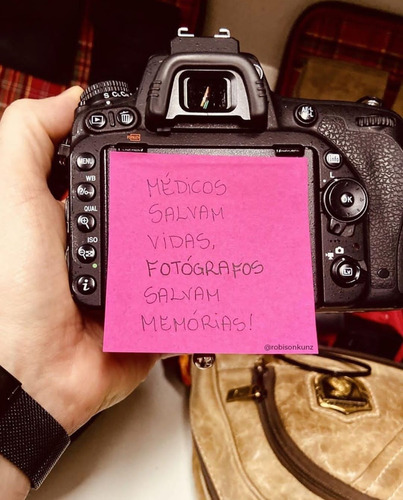 MENU
WB
QUAL
ISO
i
L
OK
MÉDICOS
SALVAM
VIDAS,
FOTÓGRAFOS
SALVAM
MEMÓRIAS!
@robisonkunz